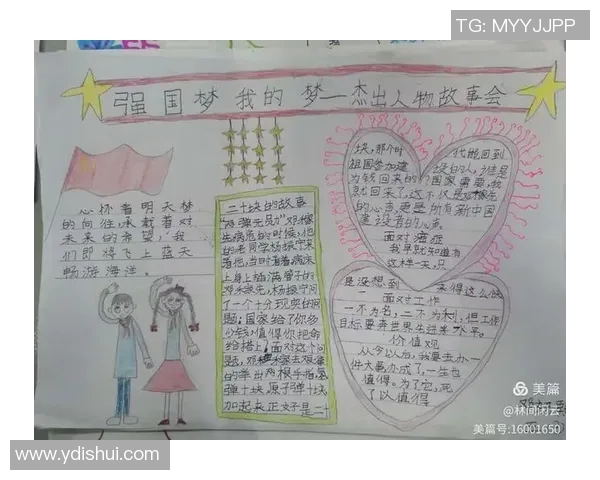 TG: MYYJJPP
强国梦 我的 梦—杰出人物故事会
心怀着明天梦
的向往,承载着对
未来的希望,我
们即将飞上蓝天
畅游海洋。
二十块的故事
病危的时候,他
的老同学杨振宁来
看他,当时看着病床
上身上插满管子的
邓稼先,杨振宁问
了一个十分现实的问
题:国家给了你多
少钱,值得你把命
给搭上?面对这个问
题,
的举出两根手指氢
弹十块,原子弹十块
加起来正好是二十
块,那个时代能回到
祖国参加建设的人,谁是
为钱回来的?国家需要,我
就回来了,这不仅是邓稼先
的心声,更是所有新中国
建设者的心声
面对
我早就知道有
这样一天,只
是没想到 来得这么快
面对工作
一不为名,二不为利,但工作
目标要奔世界先进水平。
价值观
从今以后,我要去办一
件大事,办成了,一生也
值得。为了它,死
了以值得
美篇
@林间闲云
美篇号:16001650
www.ydishui.com